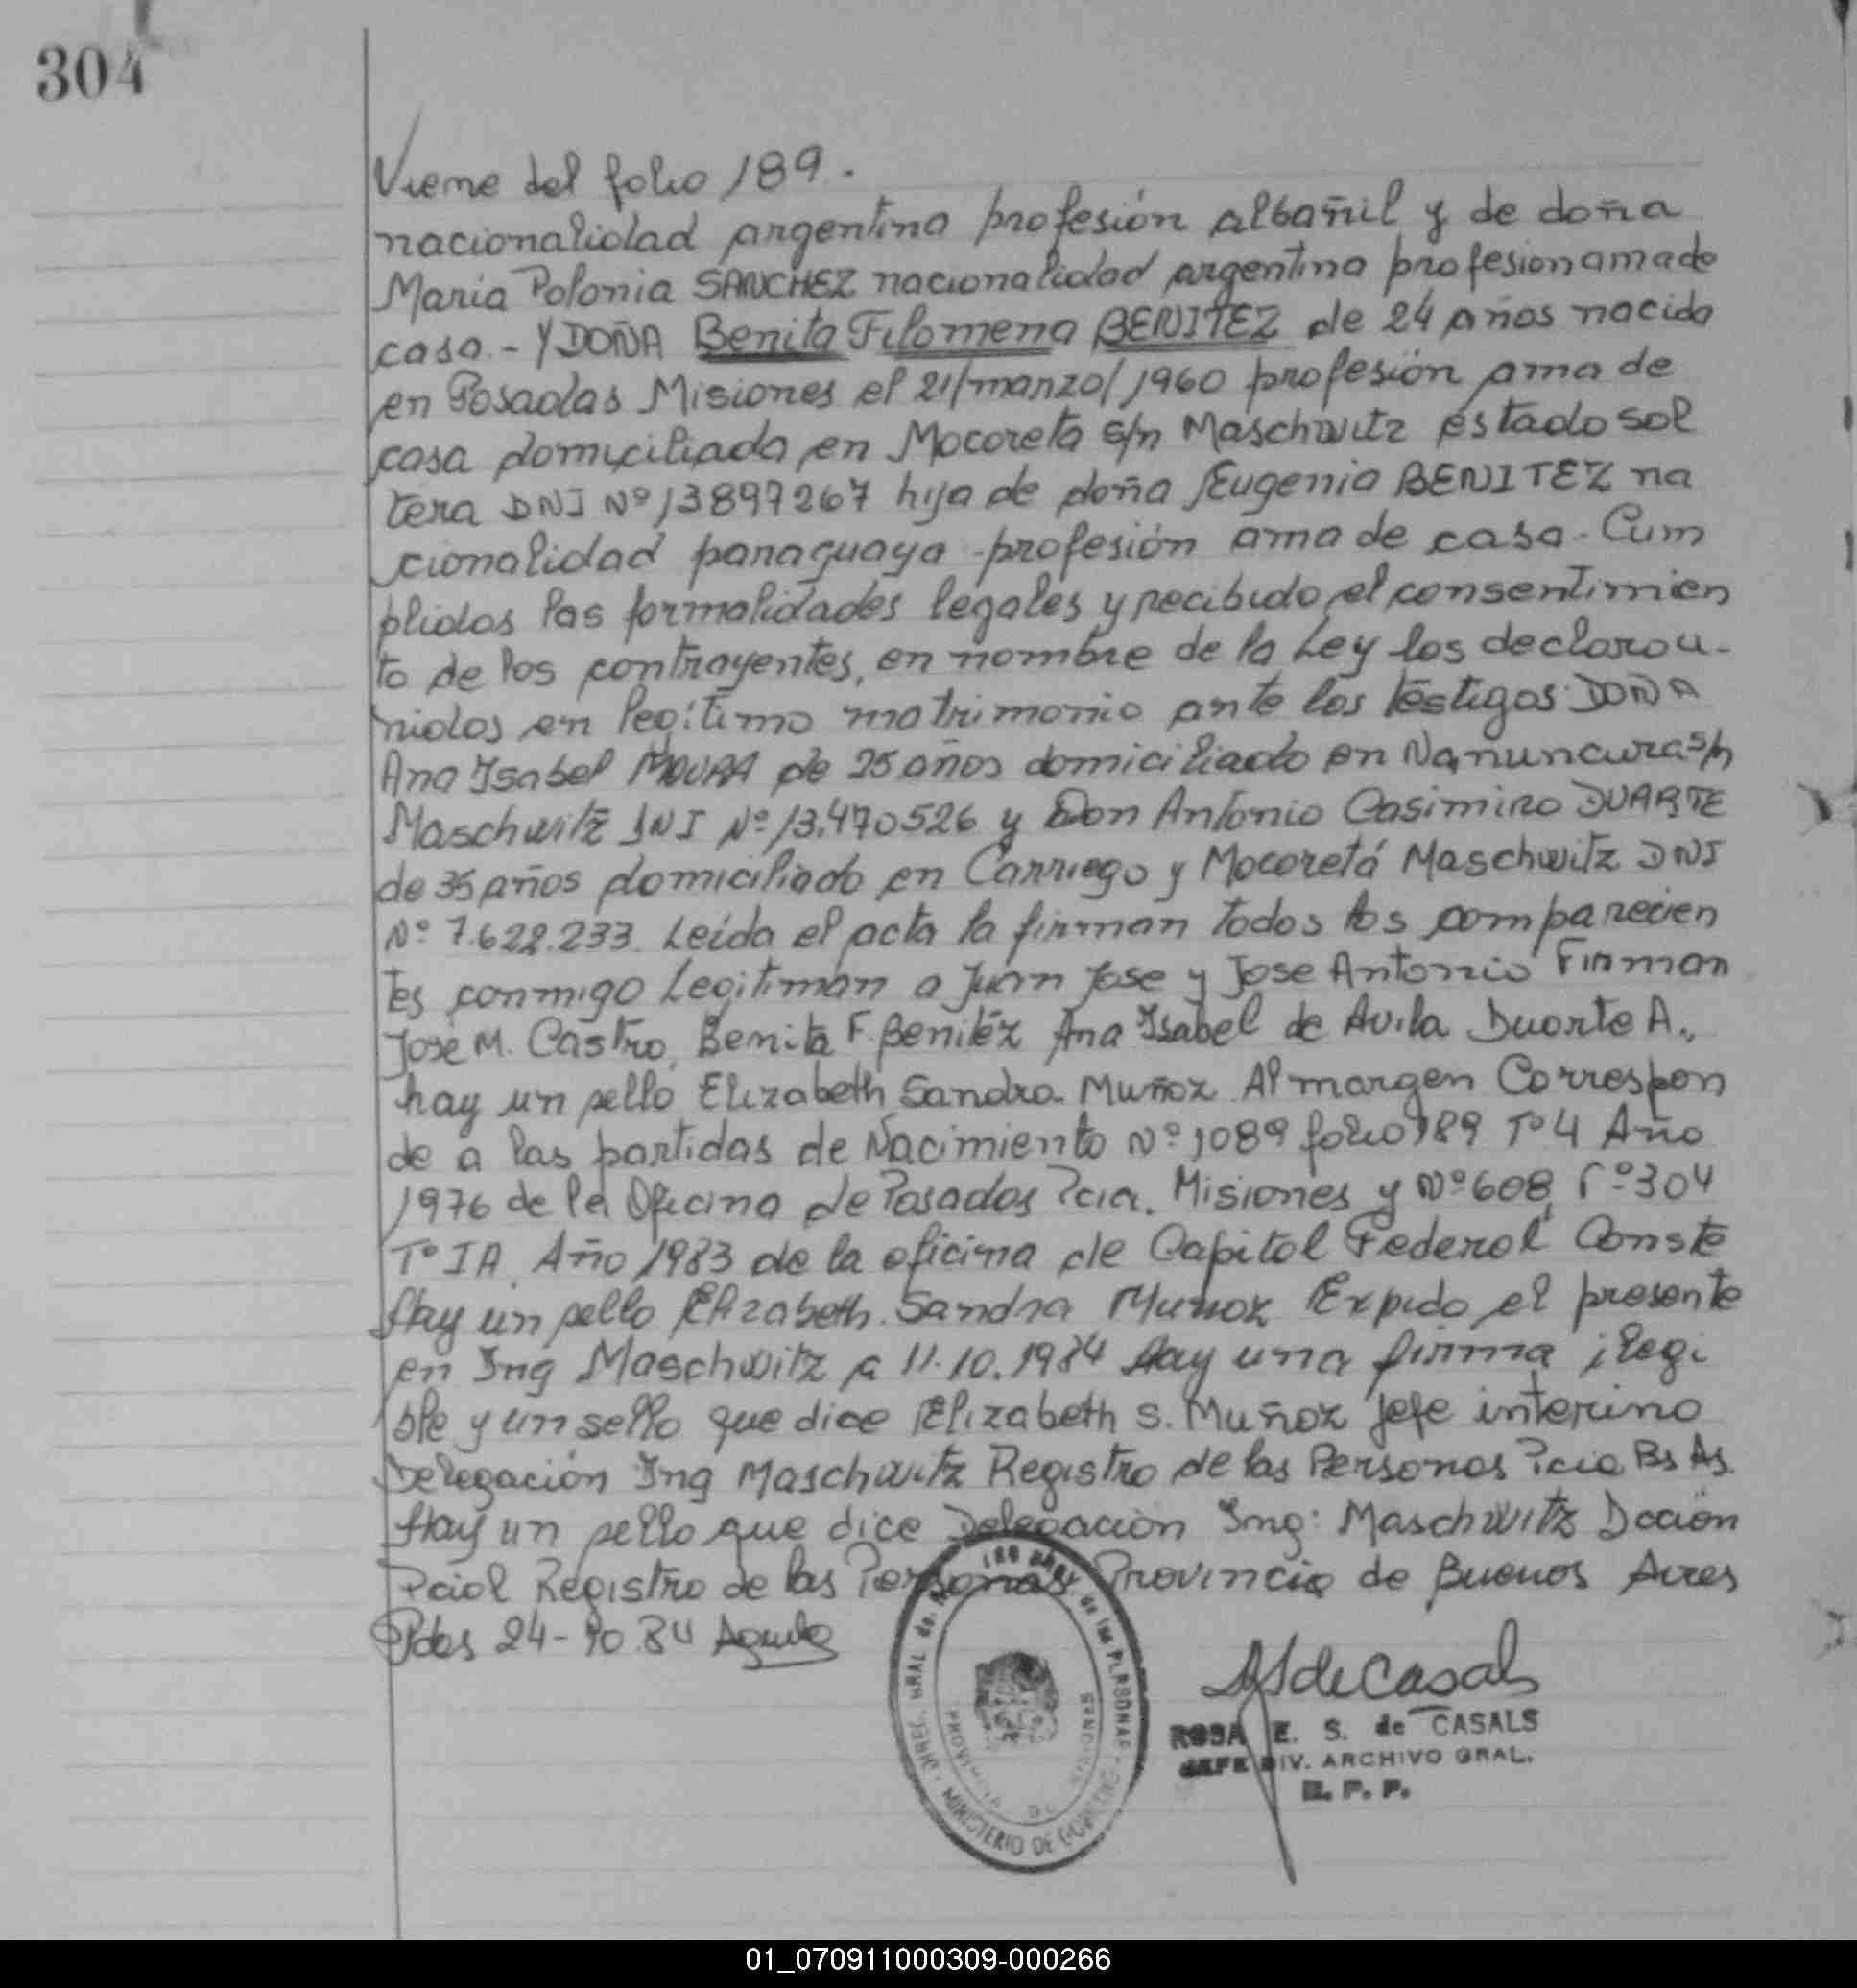 304
Viene del folio 189.
nacionalidad argentina profesión albañil y de doña
Maria Polonia SANCHEZ nacionalidad argentina profesion ama de
casa.- Y DOÑA Benita Filomena BENITEZ de 24 años nacida
en Posadas Misiones el 21/marzo/1960 profesión ama de
casa domiciliada en Mocoreta s/n Maschwitz estado sol
tera DNI Nº 13897267 hija de doña Eugenia BENITEZ na
cionalidad paraguaya profesión ama de casa. Cum
plidas las formalidades legales y recibido el consentimien
to de los contrayentes, en nombre de la Ley los declaro u-
nidos en legítimo matrimonio ante los testigos DOÑA
Ana Isabel MOURA de 25 años domiciliado en Namuncura s/n
Maschwitz DNI Nº 13.470526 y Don Antonio Casimiro DUARTE
de 35 años domiciliado en Carriego y Mocoretá Maschwitz DNI
Nº 7.622.233. Leída el acta la firman todos los comparecien
tes conmigo Legitiman a Juan Jose y Jose Antonio Firman
José M. Castro, Benita F. Benitéz Ana Isabel de Avila Duarte A.,
hay un sello Elizabeth Sandra Muñoz Al margen Correspon
de a las partidas de Nacimiento Nº 1089 folio 189 Tº 4 Año
1976 de la Oficina de Posadas Pcia. Misiones y Nº 608 Fº 304
Tº IA Año 1983 de la oficina de Capital Federal Conste
Hay un sello Elizabeth Sandra Muñoz Expido el presente
en Ing Maschwitz a 11.10.1984 Hay una firma ilegi
ble y un sello que dice Elizabeth S. Muñoz Jefe interino
Delegación Ing Maschwitz Registro de las Personas Pcia Bs As.
Hay un sello que dice Delegación Ing: Maschwitz Dcción
Pcial Registro de las Personas Provincia de Buenos Aires
Pdas 24-10 84
ROSA E. S. de CASALS
JEFE DIV. ARCHIVO GRAL.
R. P. P.
MINISTERIO DE GOBIERNO
PROVINCIA DE MISIONES
01_070911000309-000266